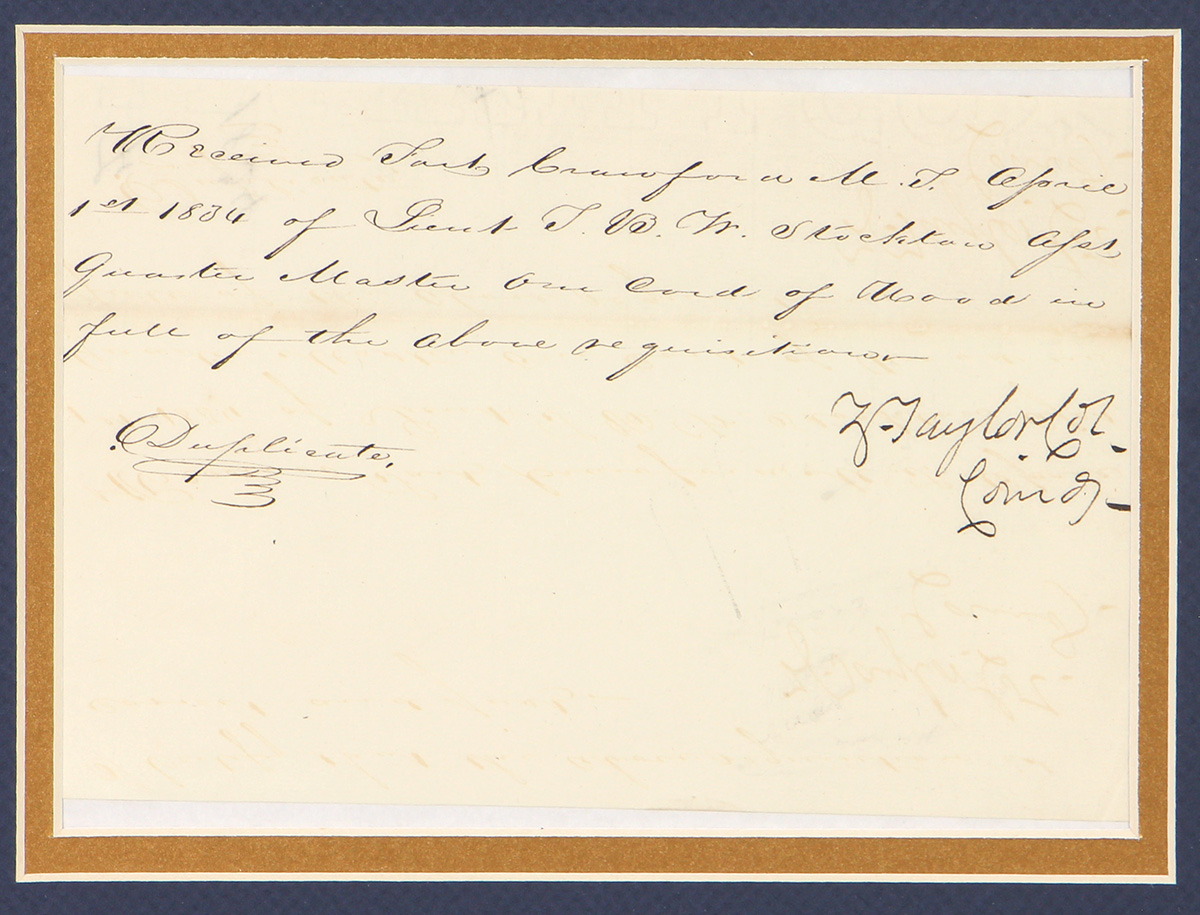 Received Fort Crawford M.T. April
1st 1834 of Lieut J. B. W. Stockton Asst
Quarter Master One Cord of Wood in
full of the above requisition
Z. Taylor Col
Comdg
Duplicate.